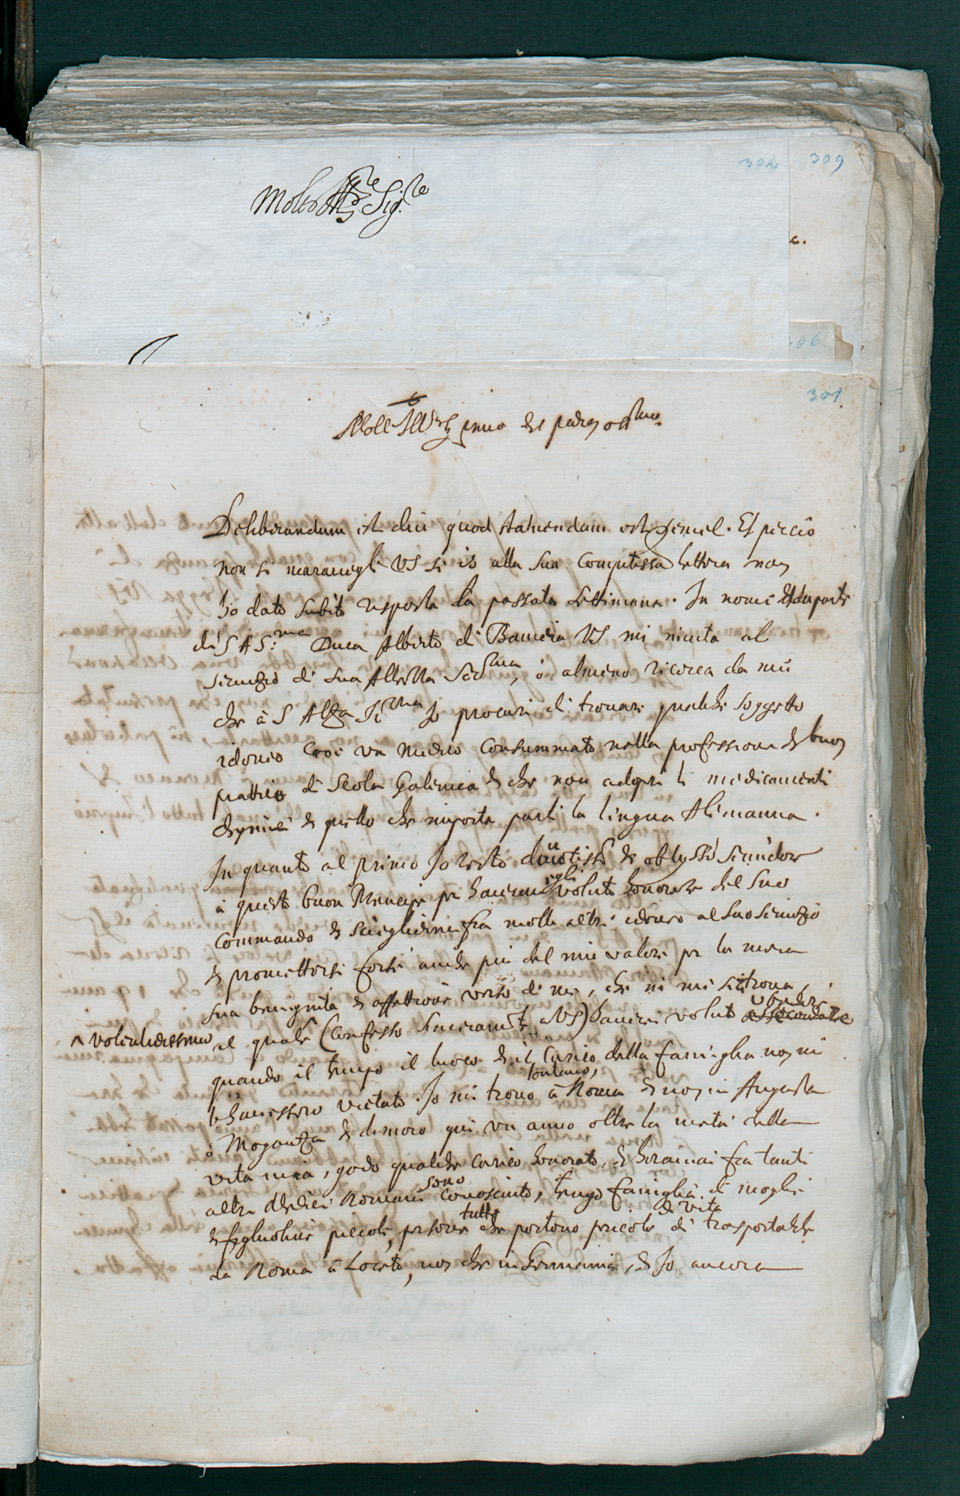 302 309
Molto Ill.re Sig.re
301
Molt Ill.re
Deliberandum est diu quod statuendum est semel. Et perciò
non si maravegli VS se io alla sua compitissa lettera non
ho dato subito risposta la passata settimana. In nome et da parte
di S A S.ma Duca Alberto di Baviera VS mi invita al
servizio di sua Altezza Ser.ma, ò almeno ricerca da me
che à S Alza Se.ma Jo procuri di trovare qualche soggetto
idoneo cioè un Medico consummato nella professione di buon
prattico di Scola Galenica et che non adopri li medicamenti
chymici et quello che importa parli la lingua Alemanna.
In quanto al primo Jo resto devotiss.o et obligss.o servidore
à questo buon Prencipe per havermi egli voluto honorare del suo
commando et sciegliermi fra molti altri idoneo al suo servizio
et promettersi forse anche più del mio valore per la mera
sua benignità et affettione verso di me, che in me si trova
^ volentierissimo al quale (confesso sinceramte à VS) haverei voluto
quando il tempo il luoco et il carico della famiglia non mi
l'havessero vietato. Jo mi trovo lontano, à Roma et non in Augusta
ò Mogantza et dimoro qui un anno oltre la metà della
vita mia, godo qualche carico honorato, et hormai fra tanti
altri Medici Romani sono conosciuto, tengo famiglia di moglie
et figliuolini piccoli, persone tutte che portono pericolo di vita di trasportarle
da Roma à Loreto, non che in Germania, et Jo ancora